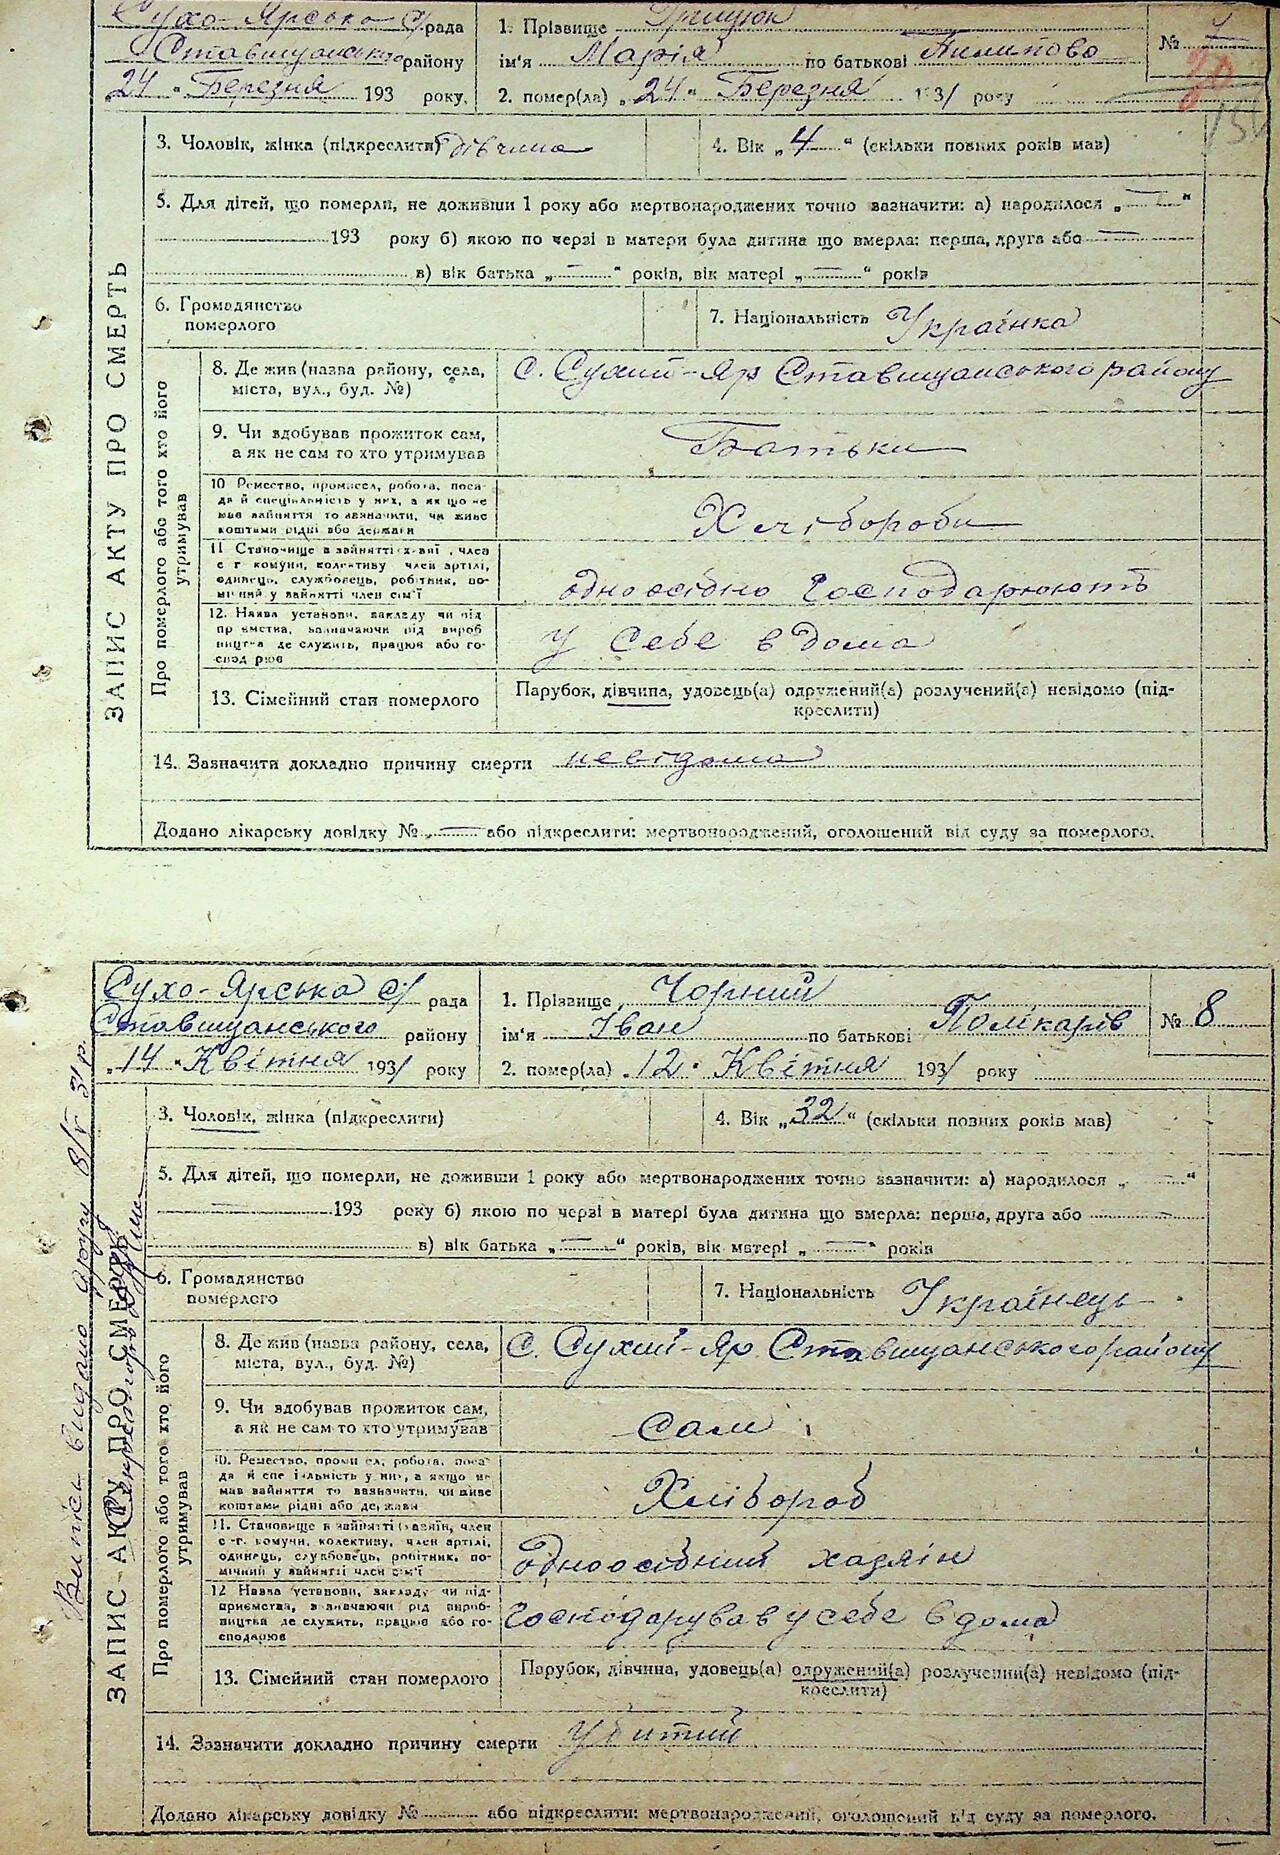 Сухо-Ярська с/рада
Ставищанського району
"24" Березня 193 року.
1. Прізвище Грищук
ім'я Марія по батькові Пилипова
2. помер(ла) "24" Березня 1931 року
№
20
3. Чоловік, жінка (підкреслити) дівчина
4. Вік "4" (скільки повних років мав)
5. Для дітей, що померли, не доживши 1 року або мертвонароджених точно зазначити: а) народилося „ — "
193 року б) якою по черзі в матери була дитина що вмерла: перша, друга або —
в) вік батька „ — " років, вік матері „ — " років
6. Громадянство
померлого
7. Національність Українка
ЗАПИС АКТУ ПРО СМЕРТЬ
Про померлого або того хто його
утримував
8. Де жив (назва району, села,
міста, вул., буд. №)
с. Сухий-Яр Ставищанського району
9. Чи здобував прожиток сам,
а як не сам то хто утримував
Батьки
10 Ремество, промисел, робота, поса-
да й спеціальність у них, а як що не
мав зайняття то зазначити, чи живе
коштами рідні або держави
Хлібороби
11 Становище в зайнятті
с г комуни, колективу член артілі,
одинець, службовець, робітник, по-
мічний у зайнятті член сім'ї
одноосібно Господарюють
12. Назва установи, закладу чи під
пр ємства, зазначаючи рід вироб
ництва де служить, працює або го-
спод рює
у себе вдома
13. Сімейний стан померлого
Парубок, дівчина, удовець(а) одружений(а) розлучений(а) невідомо (під-
креслити)
14. Зазначити докладно причину смерти невідома
Додано лікарську довідку № „ — або підкреслити: мертвонароджений, оголошений від суду за померлого.
Сухо-Ярська с/ рада
Ставищанського району
"14" Квітня 1931 року
1. Прізвище Чорний
ім'я Іван по батькові Полікарпів
2. помер(ла) "12" Квітня 1931 року
№ 8
3. Чоловік, жінка (підкреслити)
4. Вік "32" (скільки повних років мав)
5. Для дітей, що померли, не доживши 1 року або мертвонароджених точно зазначити: а) народилося „ — "
193 року б) якою по черзі в матері була дитина що вмерла: перша, друга або
в) вік батька „ — " років, вік матері „ — " років
6. Громадянство
померлого
7. Національність Українець
ЗАПИС АКТУ ПРО СМЕРТЬ
Випис видано 8/V 31 р.
Про померлого або того хто його
утримував
8. Де жив (назва району, села,
міста, вул., буд. №)
с. Сухий-Яр Ставищанського району
9. Чи здобував прожиток сам,
а як не сам то хто утримував
Сам
10. Ремество, проми ел, робота, поса
да й спе іальність у них, а якщо не
мав зайняття то зазначити, чи живе
коштами рідні або держави
Хлібороб
11. Становище в зайнятті хазяїн, член
с-г. комуни, колективу, член артілі,
одинець, службовець, робітник, по-
мічний у зайнятті член сім'ї
одноосібний хазяїн
12 Назва установи, закладу чи під-
приємства, зазначаючи рід вироб-
ництва де служить, працює або го-
сподарює
Господарував у себе вдома
13. Сімейний стан померлого
Парубок, дівчина, удовець(а) одружений(а) розлучений(а) невідомо (під-
креслити)
14. Зазначити докладно причину смерти убитий
Додано лікарську довідку № або підкреслити: мертвонароджений, оголошений від суду за померлого.